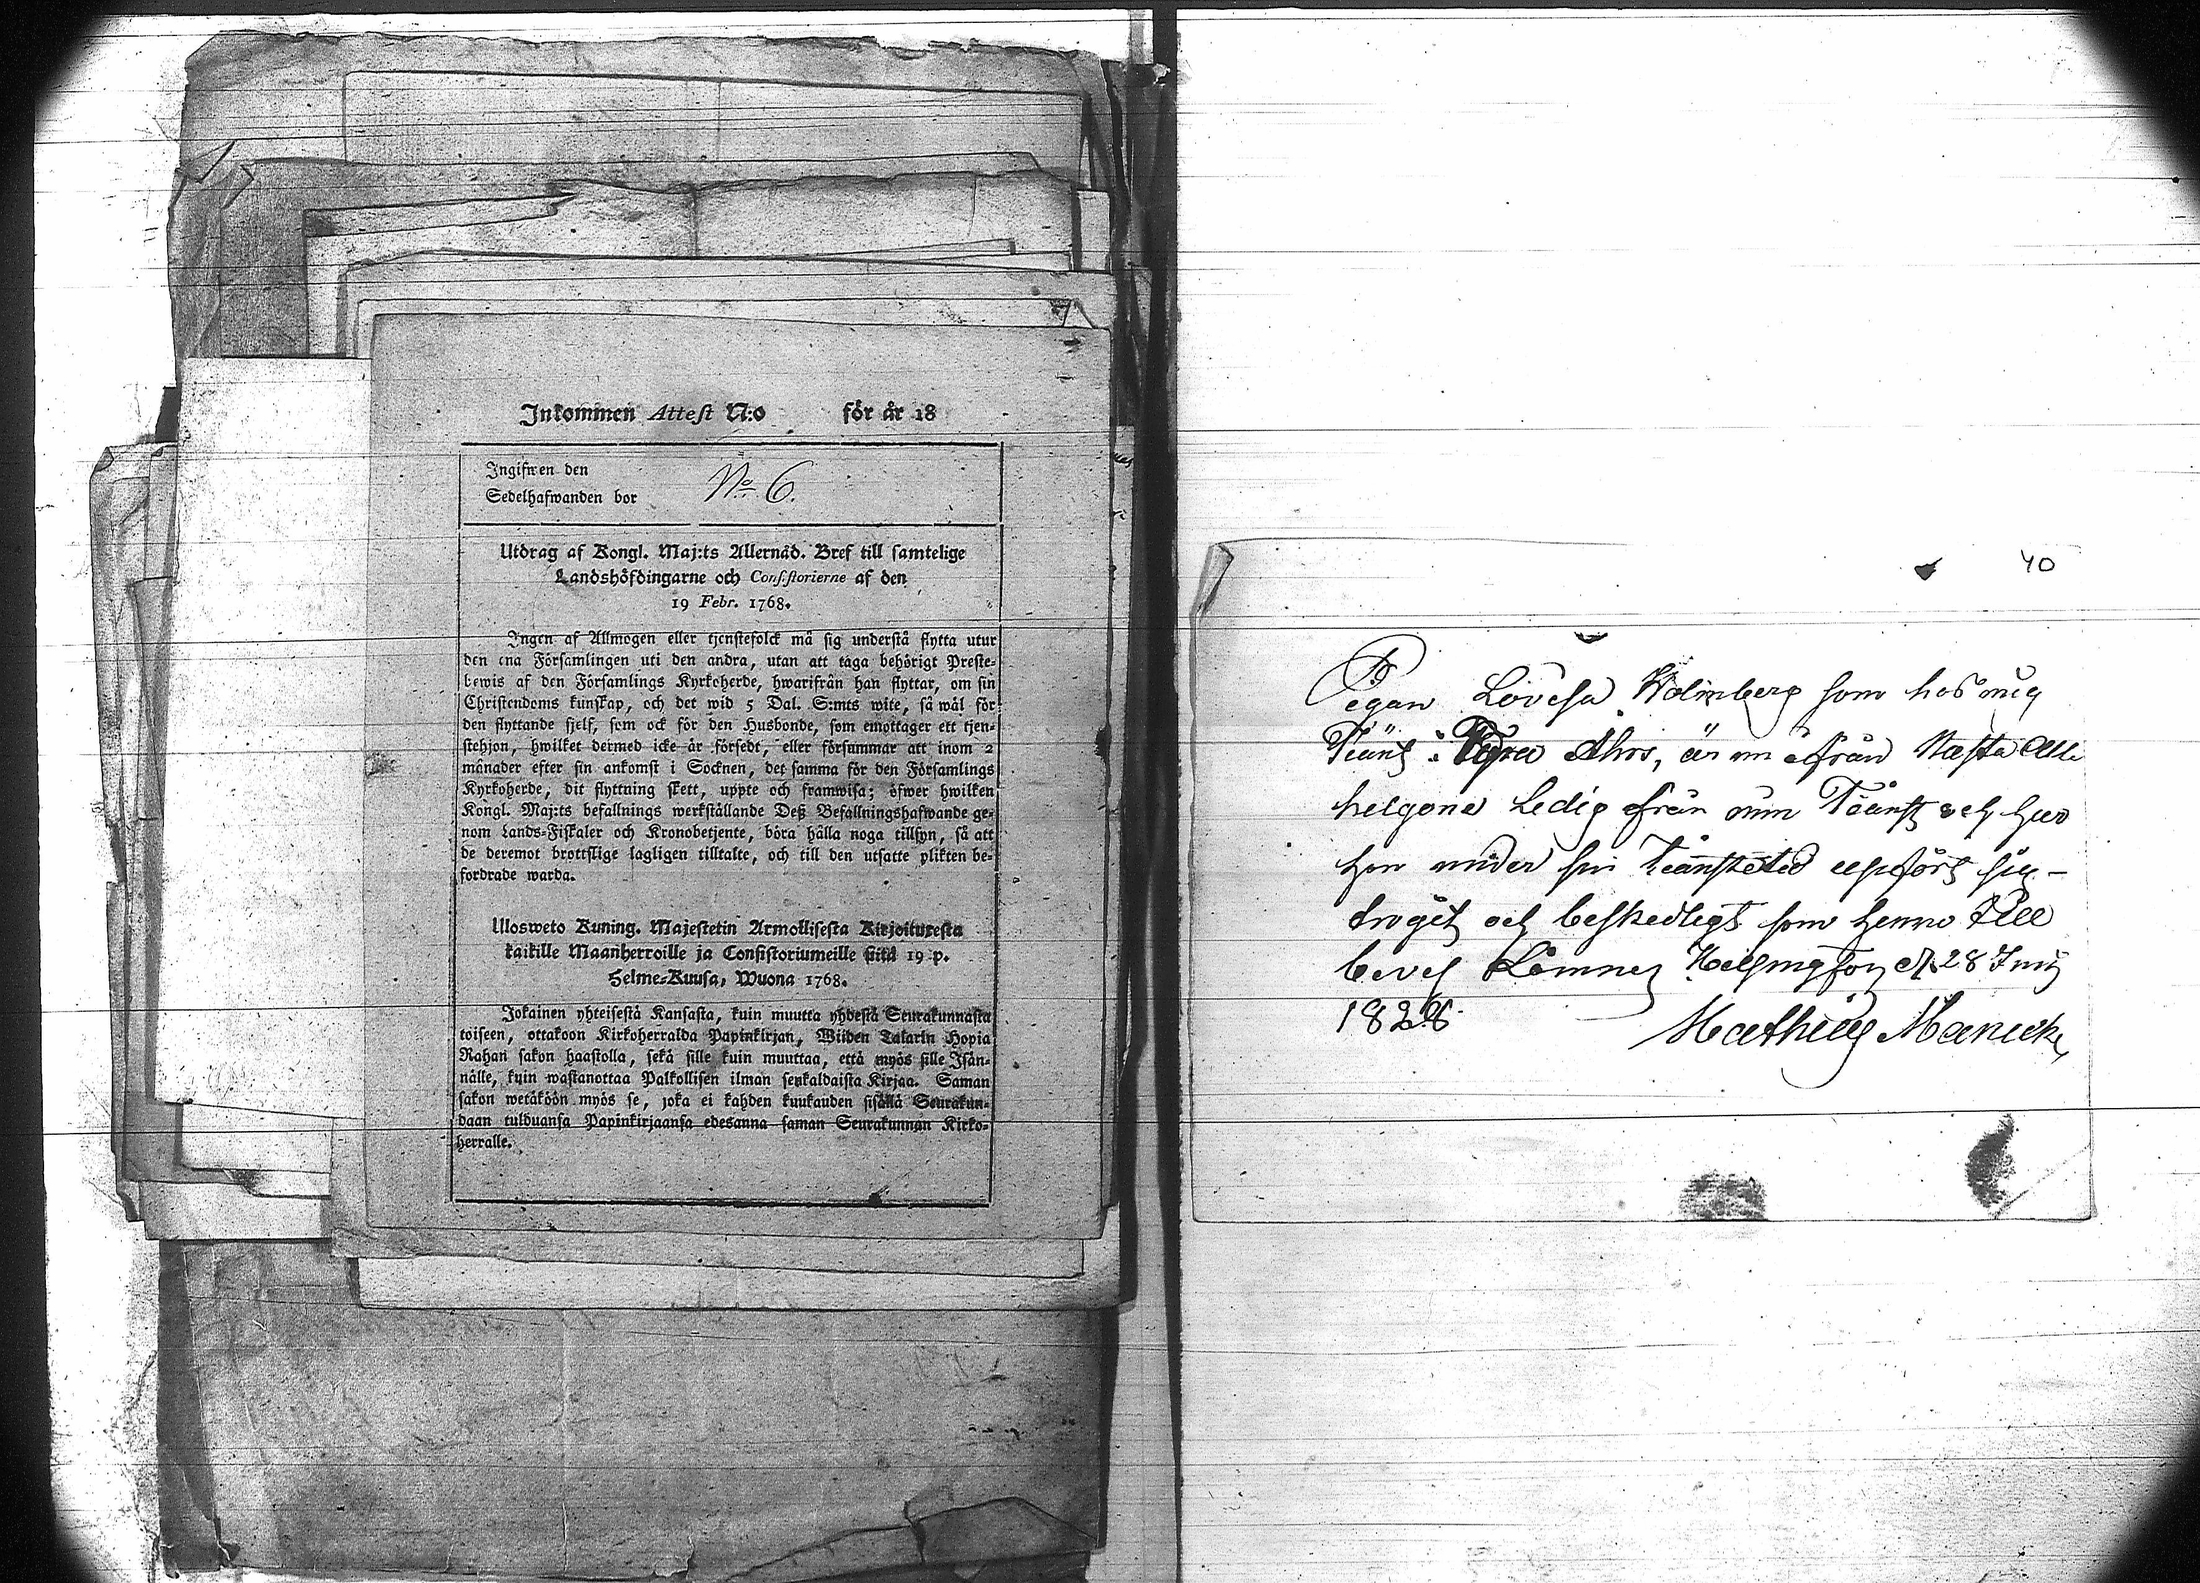 Inkommen Attest N:o för år 18
Ingifwen den
Sedelhafwanden bor
No 6.
Utdrag af Kongl. Maj:ts Allernåd. Bref till samtelige
Landshöfdingarne och Consistorierne af den
19 Febr. 1768.
Ingen af Allmogen eller tjenstefolck må sig understå flytta utur
den ena Församlingen uti den andra, utan att taga behörigt Preste-
bewis af den Församlings Kyrkoherde, hwarifrån han flyttar, om sin
Christendoms kunskap, och det wid 5 Dal. S:mts wite, så wäl för
den flyttande sjelf, som ock för den Husbonde, som emottager ett tjen-
stehjon, hwilket dermed icke är försedt, eller försummar att inom 2
månader efter sin ankomst i Socknen, det samma för den Församlings
Kyrkoherde, dit flyttning skett, uppte och framwisa; öfwer hwilken
Kongl. Maj:ts befallnings werkställande Deß Befallningshafwande ge-
nom Lands-Fiskaler och Kronobetjente, böra hålla noga tillsyn, så att
de deremot brottslige lagligen tilltalte, och till den utsatte plikten be-
fordrade warda.
Ulosweto Kuning. Majestetin Armollisesta Kirjoituresta
kaikille Maanherroille ja Consistoriumeille siitä 19 p.
Helme-Kuusa, Wuona 1768.
Jokainen yhteisestä Kansasta, kuin muutta yhdestä Seurakunnasta
toiseen, ottakoon Kirkoherralda Papinkirjan, Wiiden Talarin Hopia
Rahan sakon haastolla, sekä sille kuin muuttaa, että myös sille Isän-
nälle, kuin wastanottaa Palkollisen ilman senkaldaista Kirjaa. Saman
sakon wetäköön myös se, joka ei kahden kuukauden sisällä Seurakun-
daan tulduansa Papinkirjaansa edesanna saman Seurakunnan Kirko-
herralle.
40
Pegan Lovesa Holmberg som hos mig
Tiänt i Ahrs, är nu ifrån Nästa Alle
helgona Ledig från min Tiänst och har
hon under sin tiänstetid upfört sig -
troget och beskedligt som henne till
bevis Lämnes Helsingfors d. 28 Junij
1826.
Mathias